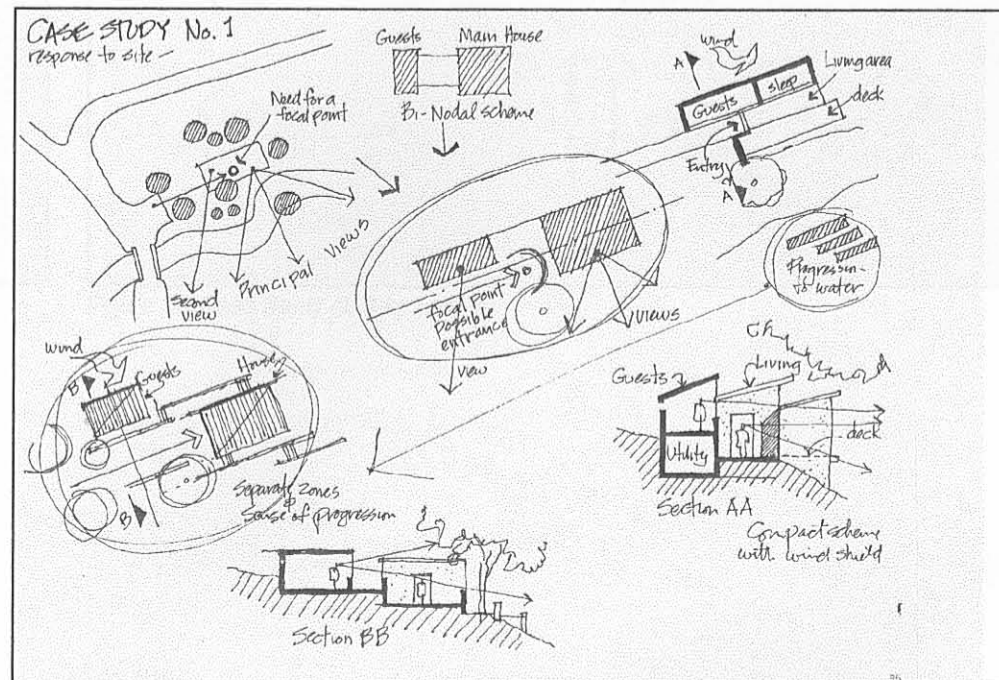 CASE STUDY No. 1
response to site –
Need for a
focal point
Second
view
Principal
Views
Guests
Main House
Bi-Nodal scheme
wind
A
Guests
sleep
Living area
deck
Entry
A
focal point
possible
entrance
view
views
Progression
to water
wind
B
Guests
House
B
Separate zones
Sense of progression
Section BB
Guests
Living
Utility
deck
Section AA
Compact scheme
with wind shield